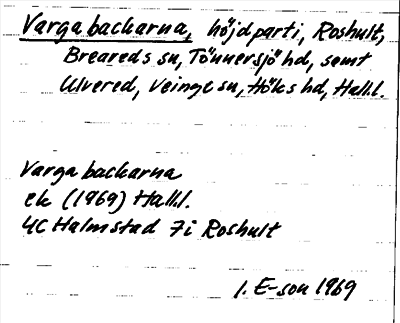 Vargabackarna, höjdparti, Roshult,
Breareds sn, Tönnersjö hd, samt
Ulvered, Veinge sn, Höks hd, Hall.
Vargabackarna
ek (1969) Hall.
4C Halmstad 7i Roshult
1. E-son 1969